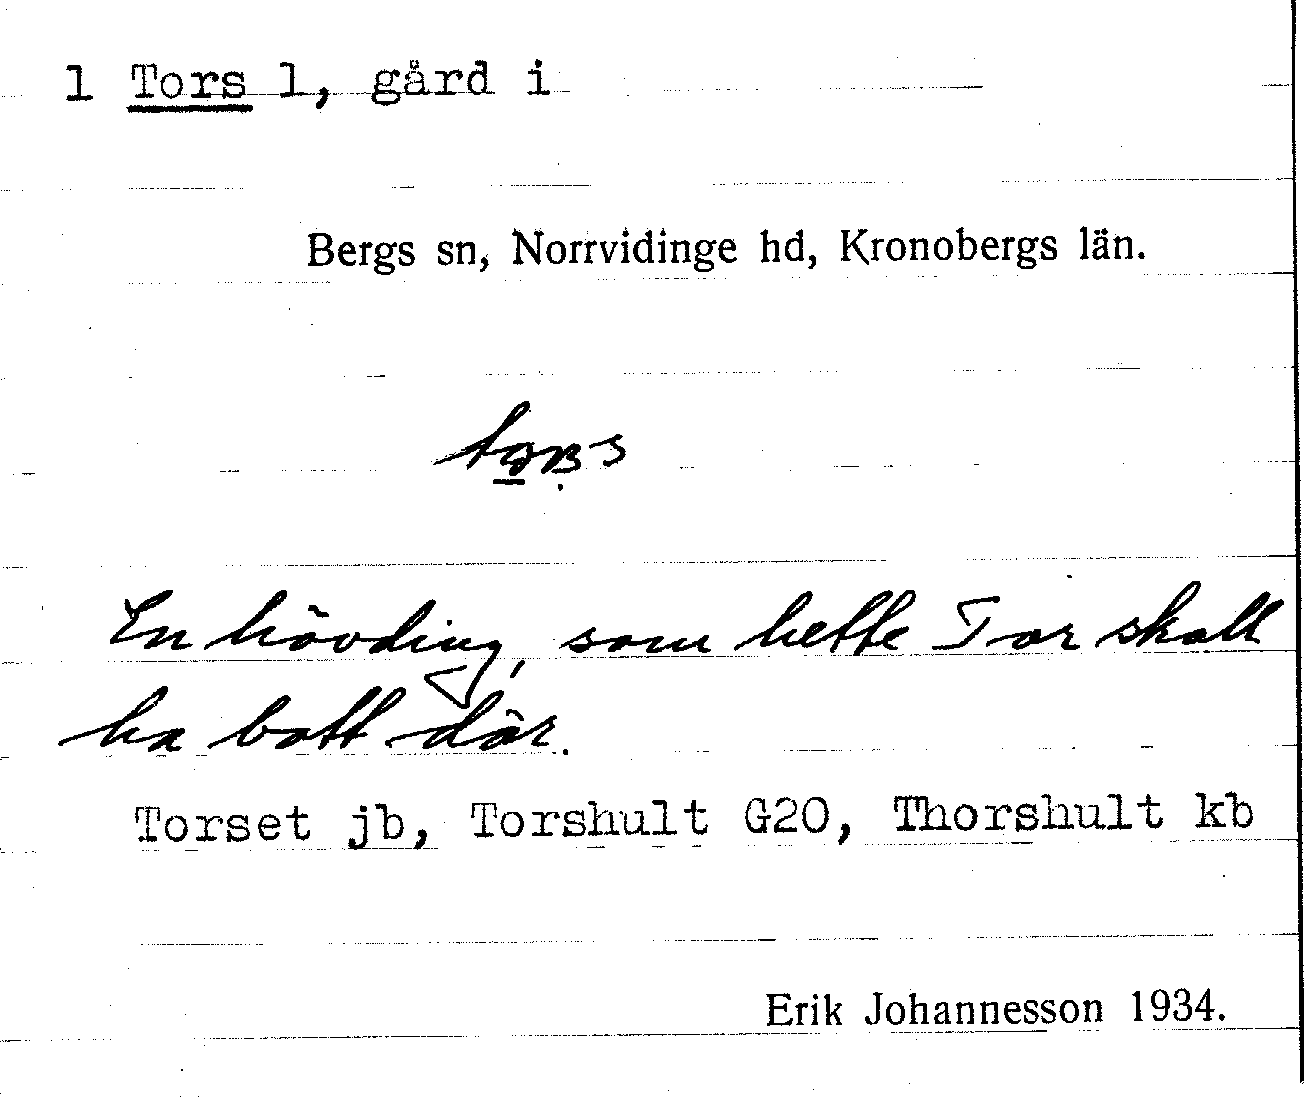 1 Tors 1, gård i
Bergs sn, Norrvidinge hd, Kronobergs län.
En hövding, som hette Tor skall
ha bott där.
Torset jb, Torshult G20, Thorshult kb
Erik Johannesson 1934.